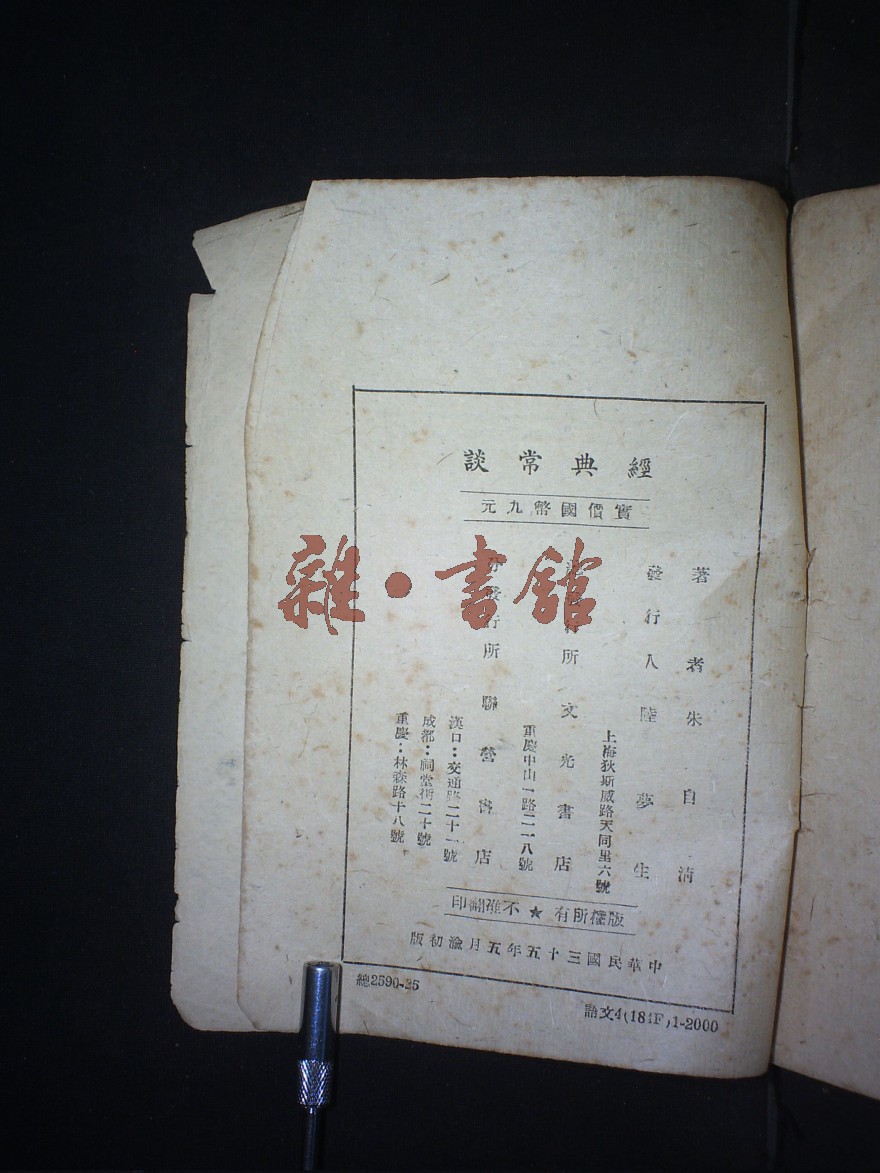 經典常談
實價國幣九元
著者朱自清
發行人陸夢生
上海狄斯威路天同里六號
發行所文光書店
重慶中山一路二一八號
分發行所聯營書店
漢口：交通路二十一號
成都：祠堂街二十號
重慶：林森路十八號
版權所有★不准翻印
中華民國三十五年五月渝初版
總2590-25
語文4(184F)1-2000
雜·書館